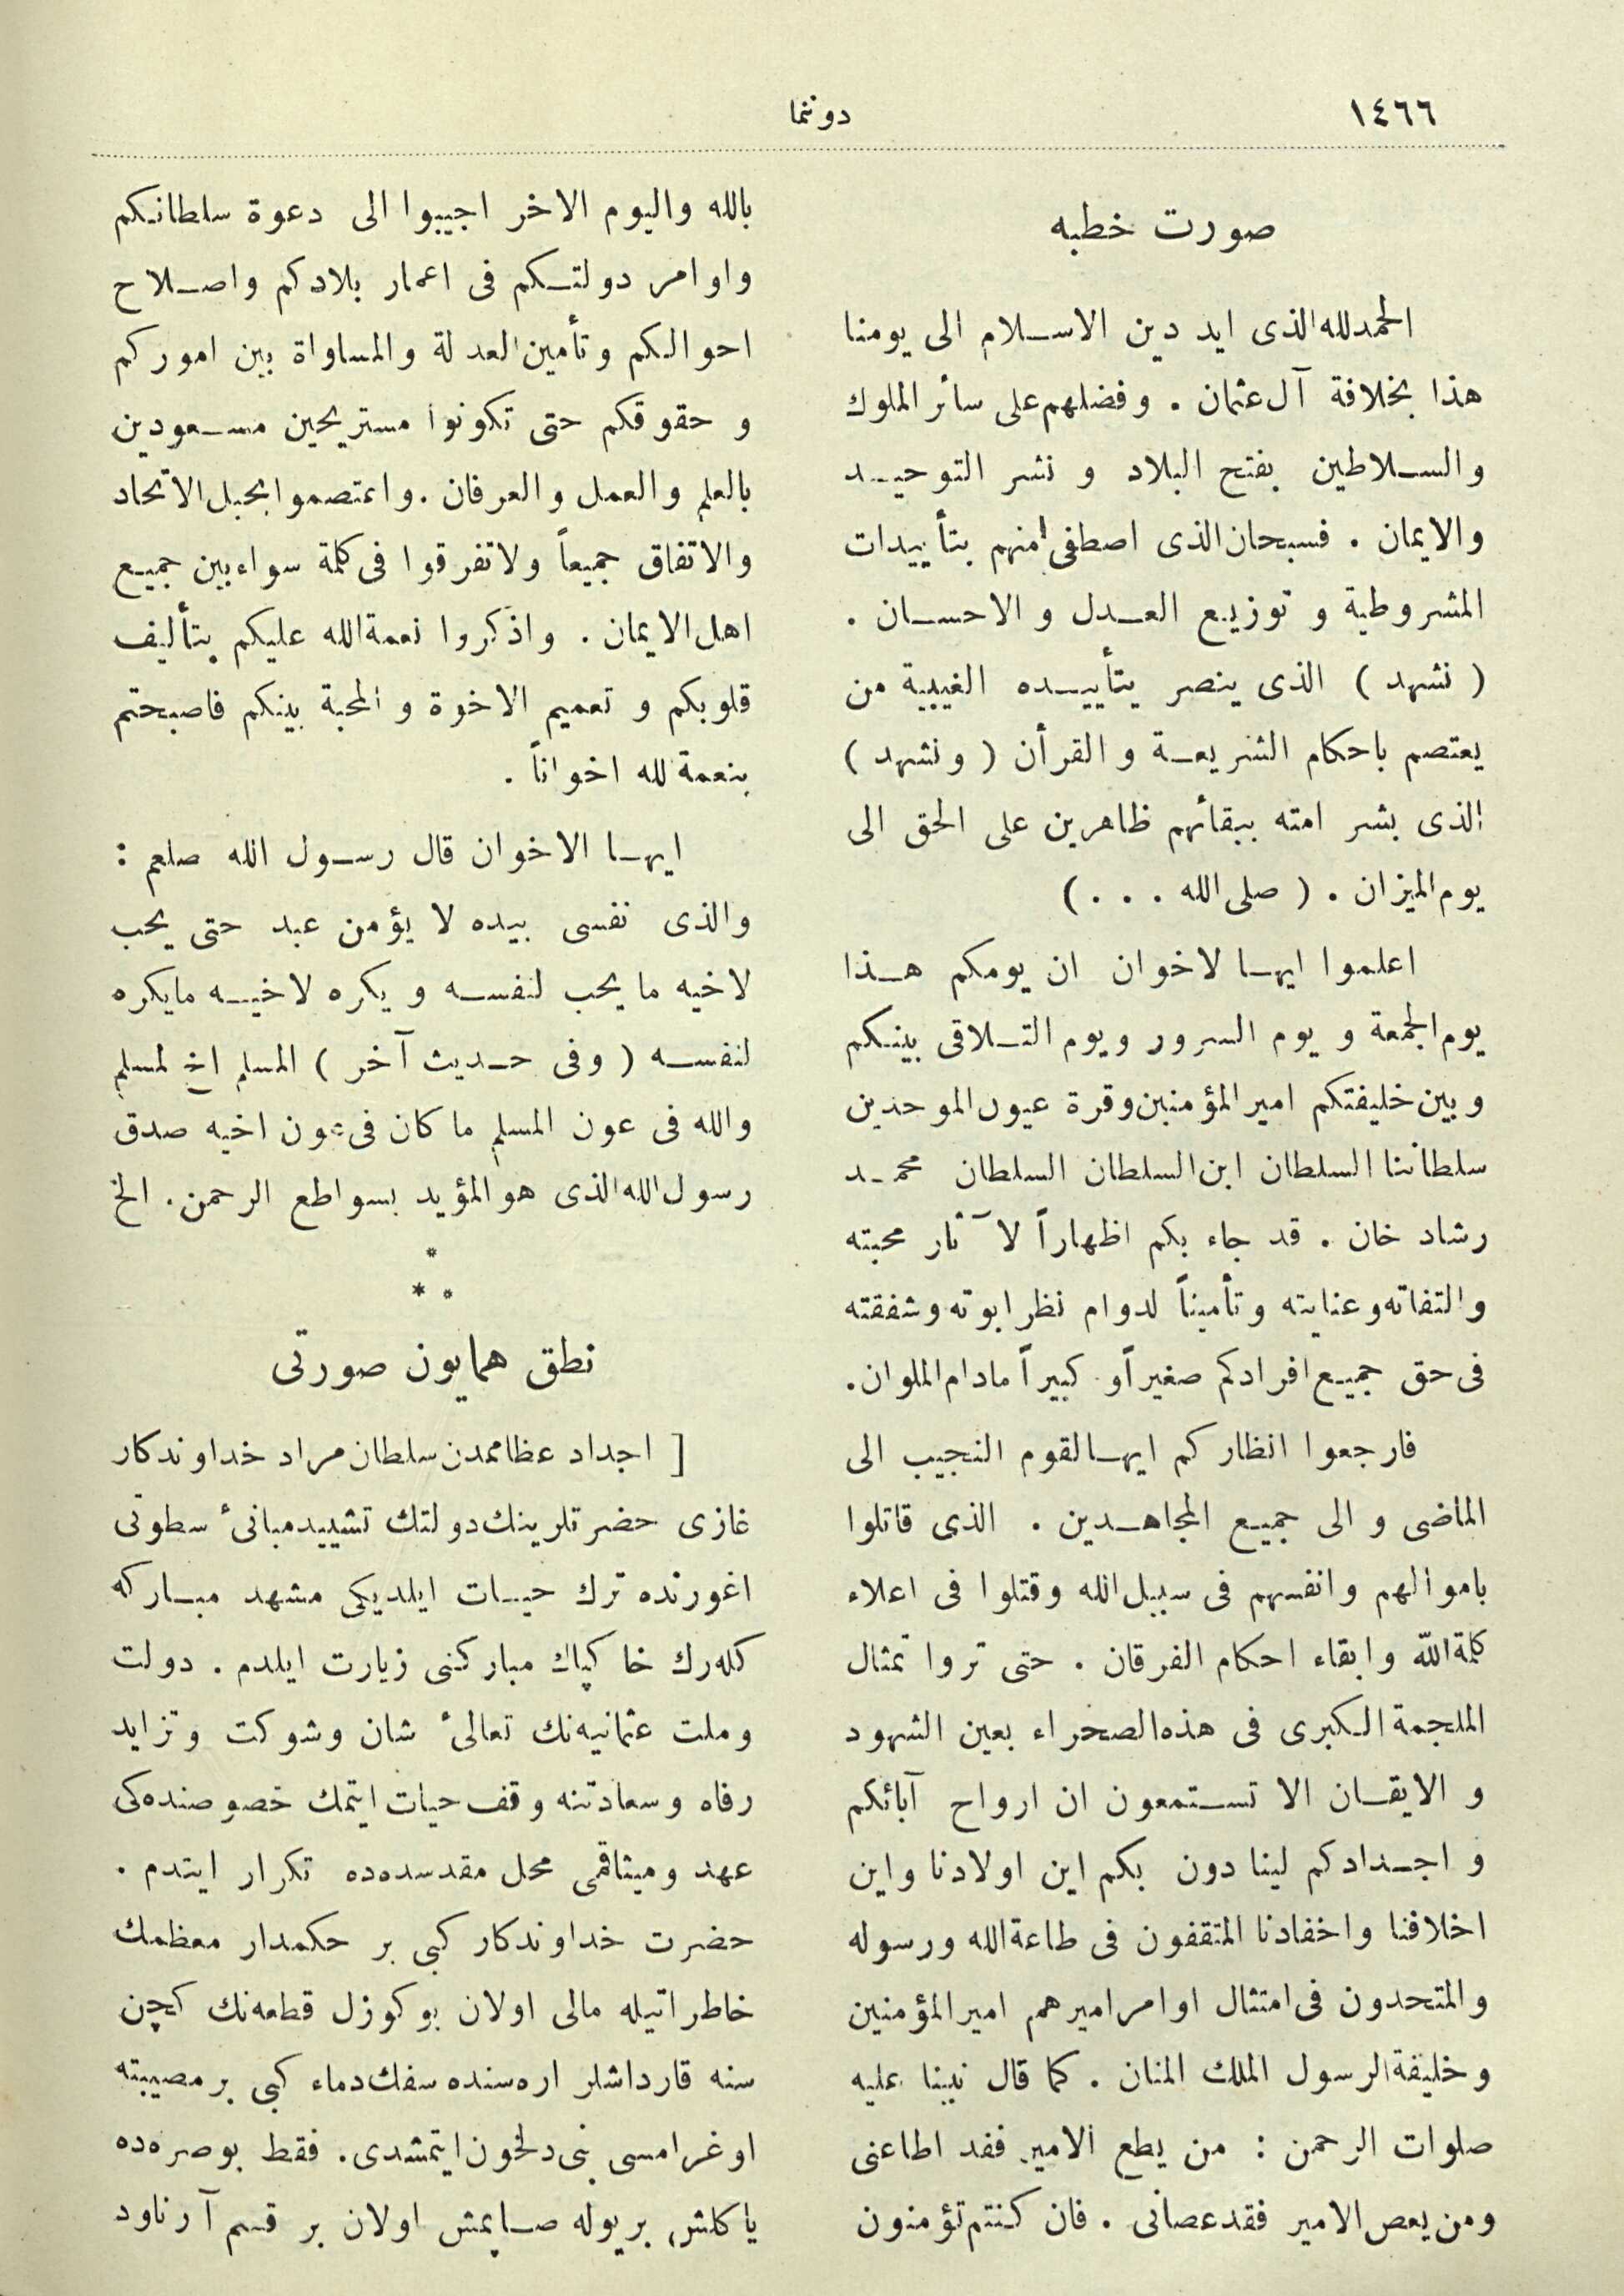 ١٤٦٦
دوننما
صورت خطبه
الحمدلله الذى ايد دين الاسلام الى يومنا
هذا بخلافة آل عثمان . وفضلهم على سائر الملوك
والسلاطين بفتح البلاد و نشر التوحيد
والايمان . فسبحان الذى اصطفى منهم بتأييدات
المشروطية و توزيع العدل و الاحسان .
( نشهد ) الذى ينصر يتأييده الغيبية من
يعتصم باحكام الشريعة و القرأن ( ونشهد )
الذى بشر امته ببقائهم ظاهرين على الحق الى
يوم الميزان . ( صلى الله . . . )
اعلموا ايها لاخوان ان يومكم هذا
يوم الجمعة و يوم السرور ويوم التلاقى بينكم
وبين خليفتكم امير المؤمنين وقرة عيون الموحدين
سلطاننا السلطان ابن السلطان السلطان محمد
رشاد خان . قد جاء بكم اظهاراً لآ ثار محبته
والتفاته وعنايته وتأميناً لدوام نظر ابوته وشفقته
فى حق جميع افرادكم صغيراً و كبيراً مادام الملوان .
فارجعوا انظاركم ايها القوم النجيب الى
الماضى و الى جميع المجاهدين . الذى قاتلوا
باموالهم وانفسهم فى سبيل الله وقتلوا فى اعلاء
كلمة الله وابقاء احكام الفرقان . حتى تروا تمثال
الملحمة الكبرى فى هذه الصحراء بعين الشهود
و الايقان الا تستمعون ان ارواح آبائكم
و اجدادكم لينا دون بكم اين اولادنا واين
اخلافنا واخفادنا المتقفون فى طاعة الله ورسوله
والمتحدون فى امتثال اوامر اميرهم امير المؤمنين
وخليفة الرسول الملك المنان . كما قال نبينا عليه
صلوات الرحمن : من يطع الامير فقد اطاعنى
ومن يعص الامير فقد عصانى . فان كنتم تؤمنون
بالله واليوم الاخر اجيبوا الى دعوة سلطانكم
واوامر دولتكم فى اعمار بلادكم واصلاح
احوالكم وتأمين العدلة والمساواة بين اموركم
و حقوقكم حتى تكونوا مستريحين مسعودين
بالعلم والعمل والعرفان . واعتصموا بحبل الاتحاد
والاتفاق جميعاً ولاتفرقوا فى كلمة سواء بين جميع
اهل الايمان . واذكروا نعمة الله عليكم بتأليف
قلوبكم و تعميم الاخوة و المحبة بينكم فاصبحتم
بنعمة لله اخواناً .
ايها الاخوان قال رسول الله صلعم :
والذى نفسى بيده لا يؤمن عبد حتى يحب
لاخيه ما يحب لنفسه و يكره لاخيه مايكره
لنفسه ( وفى حديث آخر ) المسلم اخ لمسلم
والله فى عون المسلم ما كان فى عون اخيه صدق
رسول الله الذى هو المؤيد بسواطع الرحمن . الخ
*
* *
نطق همايون صورتى
[ اجداد عظامدن سلطان مراد خداوندكار
غازى حضرتلرينك دولتك تشييد مبانئ سطوتى
اغورنده ترك حيات ايلديكى مشهد مباركه
كله رك خا كپاك مباركنى زيارت ايلدم . دولت
وملت عثمانيه نك تعالئ شان وشوكت وتزايد
رفاه وسعادتنه وقف حيات ايتمك خصوصنده كى
عهد وميثاقمى محل مقدسده ده تكرار ايتدم .
حضرت خداوندكار كبى بر حكمدار معظمك
خاطراتيله مالى اولان بو كوزل قطعه نك كچن
سنه قارداشلر اره سنده سفك دماء كبى بر مصيبته
اوغرامسى بنى دلخون ايتمشدى . فقط بوصره ده
ياكلش بريوله صاپمش اولان بر قسم آرناود